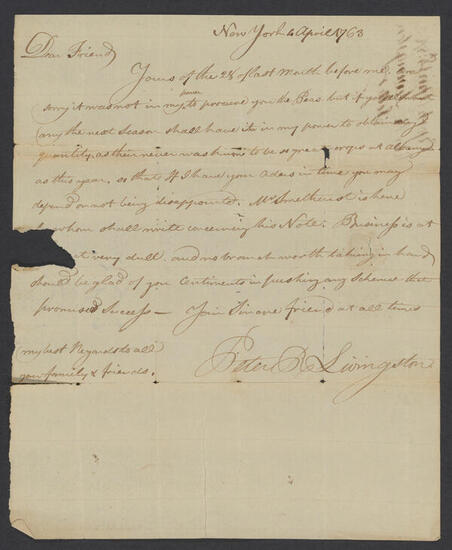 New York 4 April 1763
Dear Friend
Yours of the 28 of last Month before me, am
sorry it was not in my power to procure you the Peas. but if you
any the next Season shall have it in my power to obtain any
quantity, as their never was known to be so great crops at Albany
as this year, so that If I have your Orders in time you may
depend on not being disappointed. Mr Smethurst is here
by whom shall write concerning his Note. Business is at
very dull. and no branch worth taking in hand
should be glad of you Centiments in pushing any Scheme that
promised Success — Your Sincere friend at all times
my best Regards to all
your family & friends.
Peter R Livingston